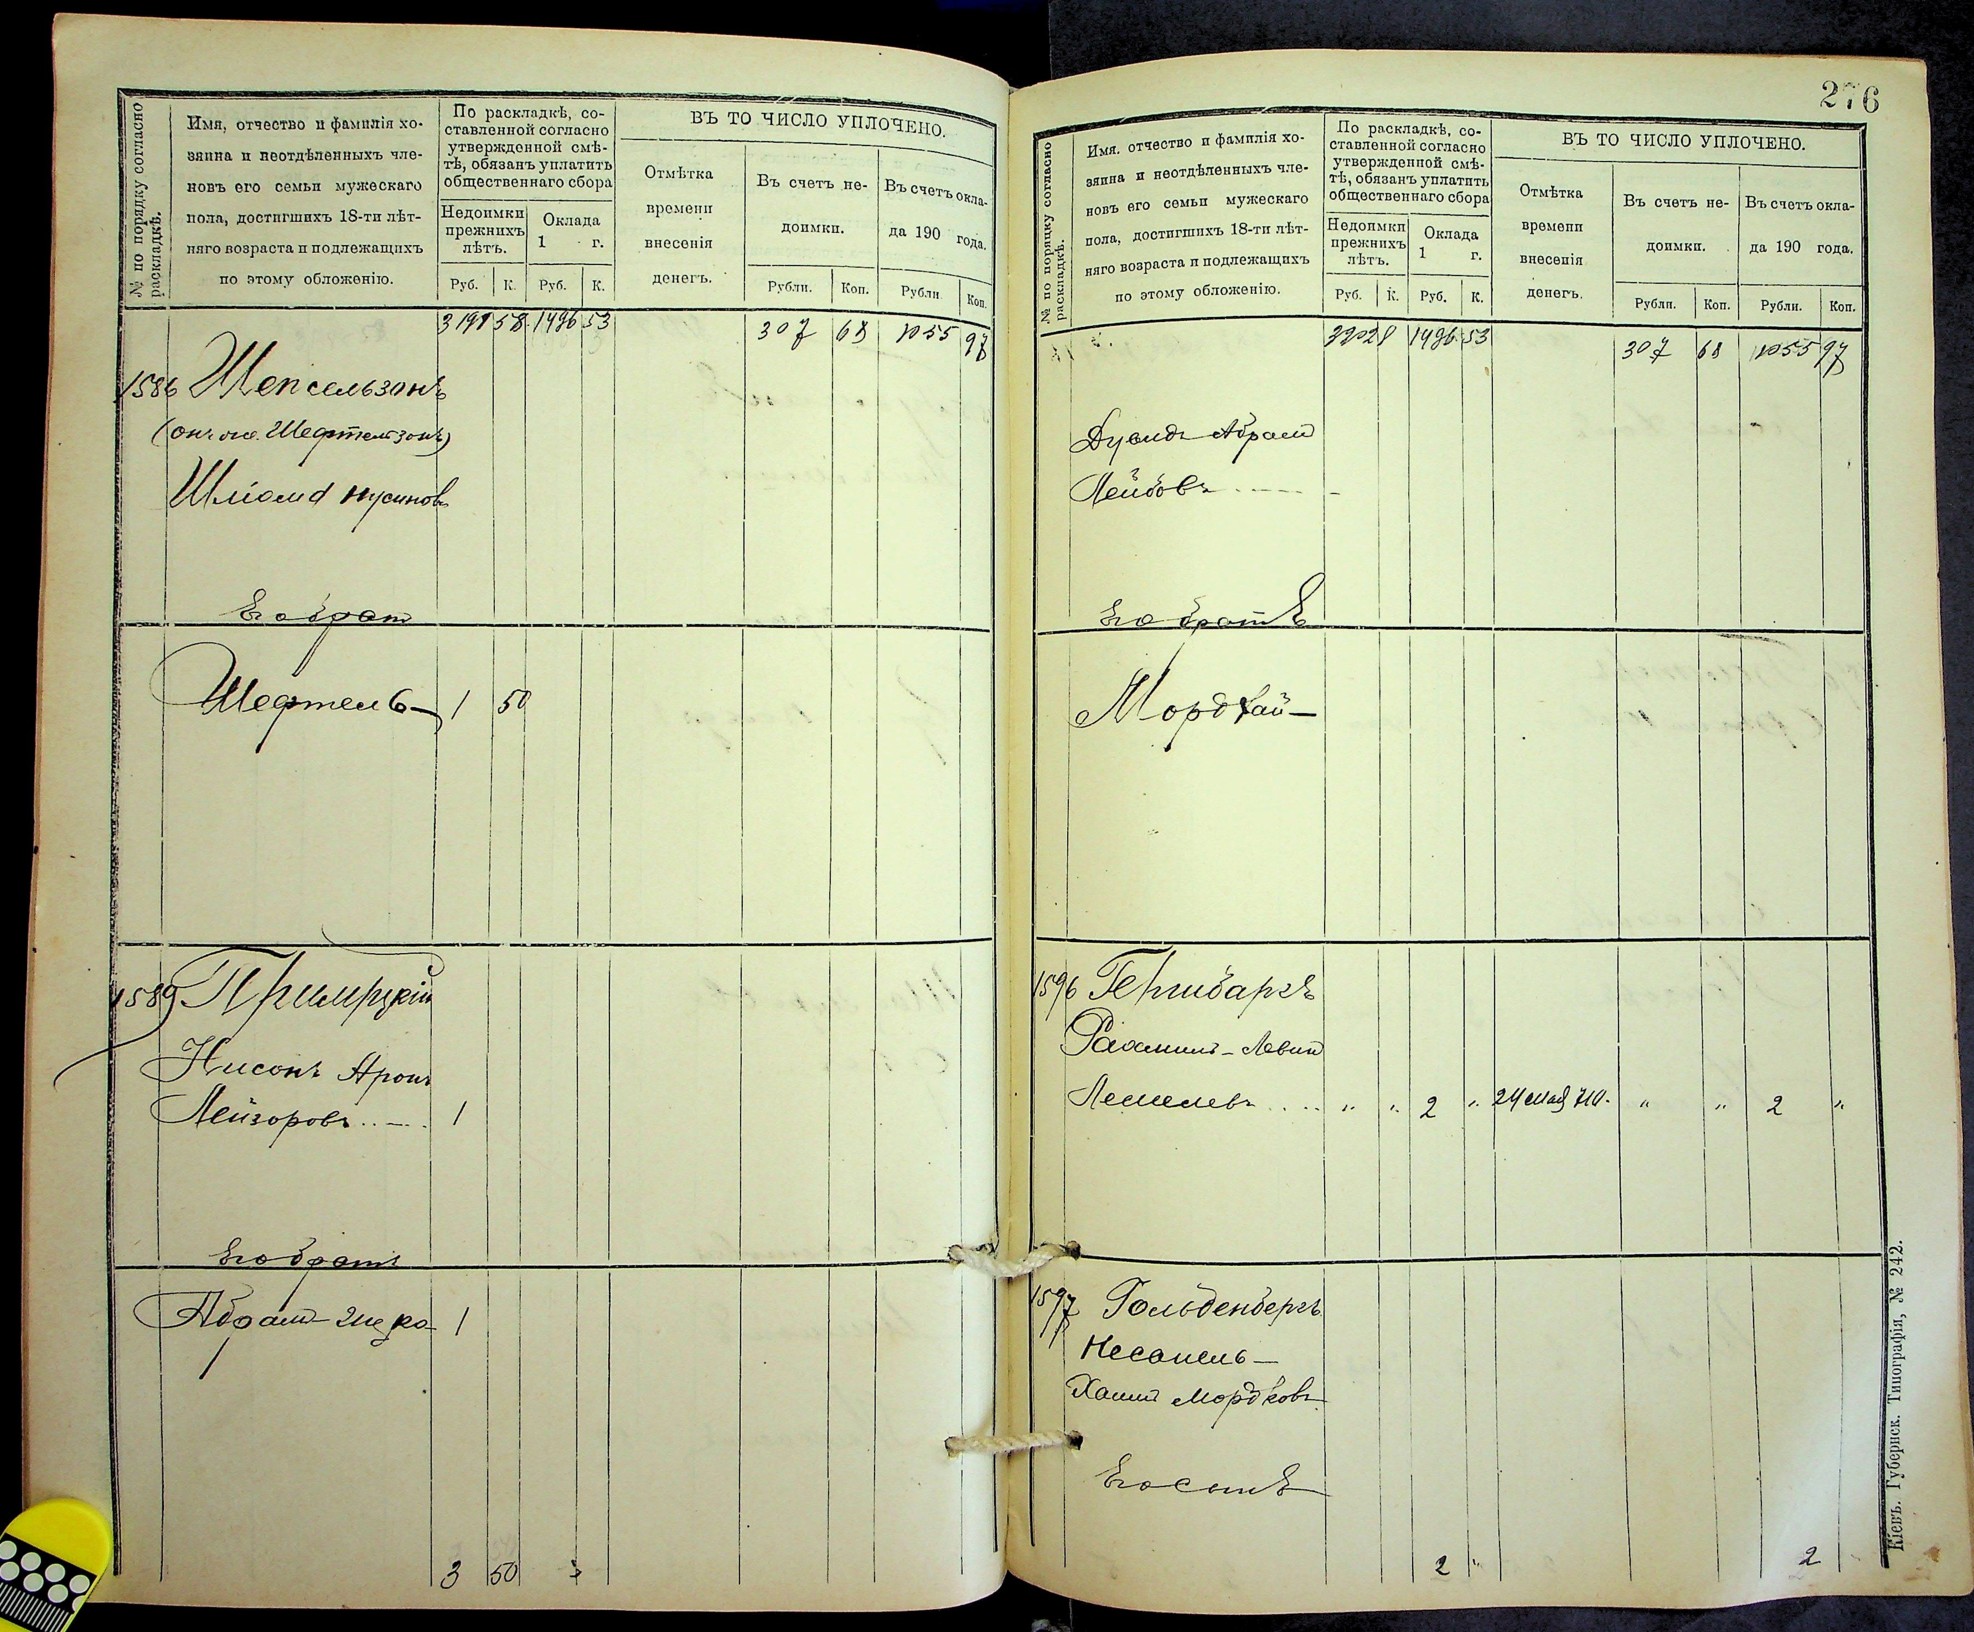 № по порядку согласно раскладкѣ.
Имя, отчество и фамилія хо-
зяина и неотдѣленныхъ чле-
новъ его семьи мужескаго
пола, достигшихъ 18-ти лѣт-
няго возраста и подлежащихъ
по этому обложенію.
По раскладкѣ, со-
ставленной согласно
утвержденной смѣ-
тѣ, обязанъ уплатить
общественнаго сбора
Недоимки
прежнихъ
лѣтъ.
Оклада
1 г.
Руб. К. Руб. К.
ВЪ ТО ЧИСЛО УПЛОЧЕНО.
Отмѣтка
времени
внесенія
денегъ.
Въ счетъ не-
доимки.
Рубли. Коп.
Въ счетъ окла-
да 190 года.
Рубли Коп.
3198 58 1496 53 307 68 1055 97
1586 Шепсельзонъ
(онъ же Шефтельзонъ)
Шліома Нусиновъ
Его братъ
Шефтель 1 50
1589
Нисонъ Аронъ
Лейзоровъ 1
Его братъ
Абрамъ 1
3 50 "
276
№ по порядку согласно раскладкѣ.
Имя. отчество и фамилія хо-
зяина и неотдѣленныхъ чле-
новъ его семьи мужескаго
пола, достигшихъ 18-ти лѣт-
няго возраста и подлежащихъ
по этому обложенію.
По раскладкѣ, со-
ставленной согласно
утвержденной смѣ-
тѣ, обязанъ уплатить
общественнаго сбора
Недоимки
прежнихъ
лѣтъ.
Оклада
1 г.
Руб. К. Руб. К.
ВЪ ТО ЧИСЛО УПЛОЧЕНО.
Отмѣтка
времени
внесенія
денегъ.
Въ счетъ не-
доимки.
Рубли. Коп.
Въ счетъ окла-
да 190 года.
Рубли. Коп.
3202 8 1496 53 307 68 1055 97
Дувидъ Абрам
Лейбовъ
Его братъ
Мордхай
1596
Лемелевъ " " 2 " 24 мая 710. " " 2 "
1597 Гольденбергъ
Несанель
Хаим Мордковъ
Его сынъ
2 " 2
Кіевъ. Губернск. Типографія, № 242.